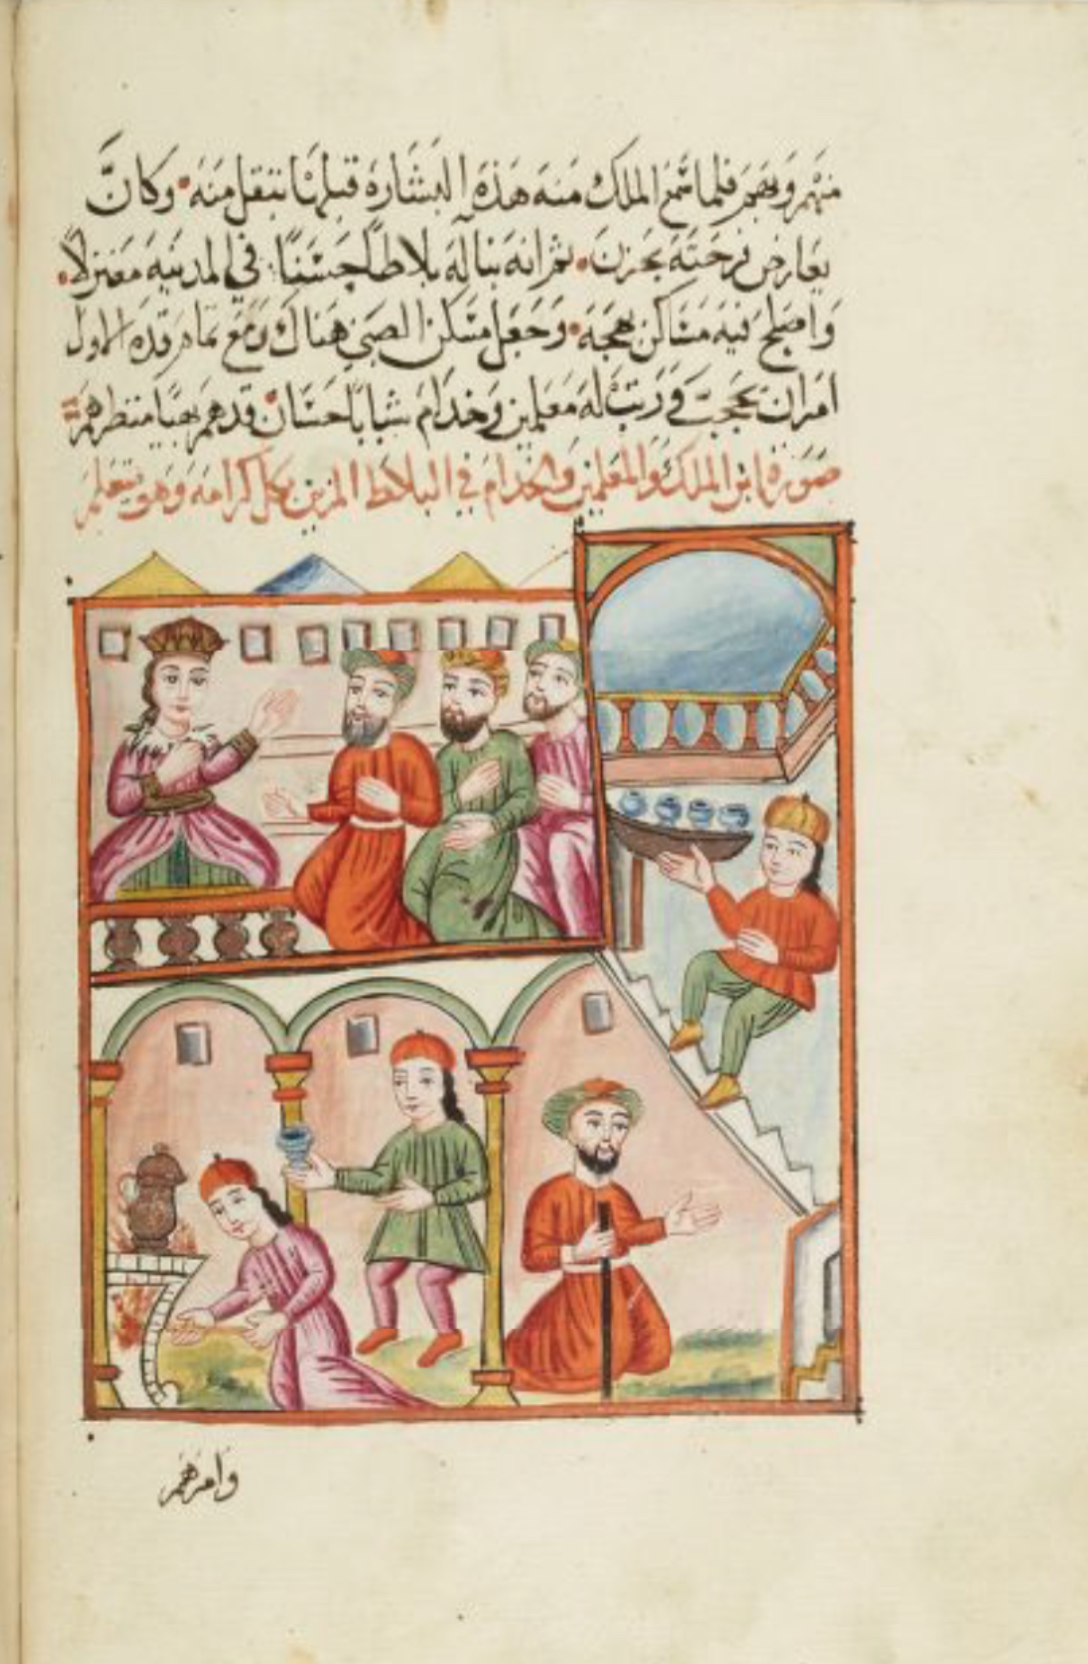 منهم وبهم فلما سَمع الملك منه هذه البشاره قبلها بثقل منه وكان
يعارض فرحته بحزن ثم انه بنا له بلاطاً حسَنًا في المدينه معتزلاً
واصلح فيه مسَاكن بهجه وجعل مسَكن الصبي هناك ومع تمام قده الاول
امر ان يحجب ورتب له معلمين وخدام شباباً حسَان قدهم بهيا منظرهم
صورة ابن الملك والمعلمين والخدام في البلاط المزين بكل كرامه وهو يتعلم
وامرهم